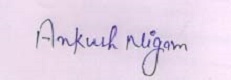 Ankush Nigam